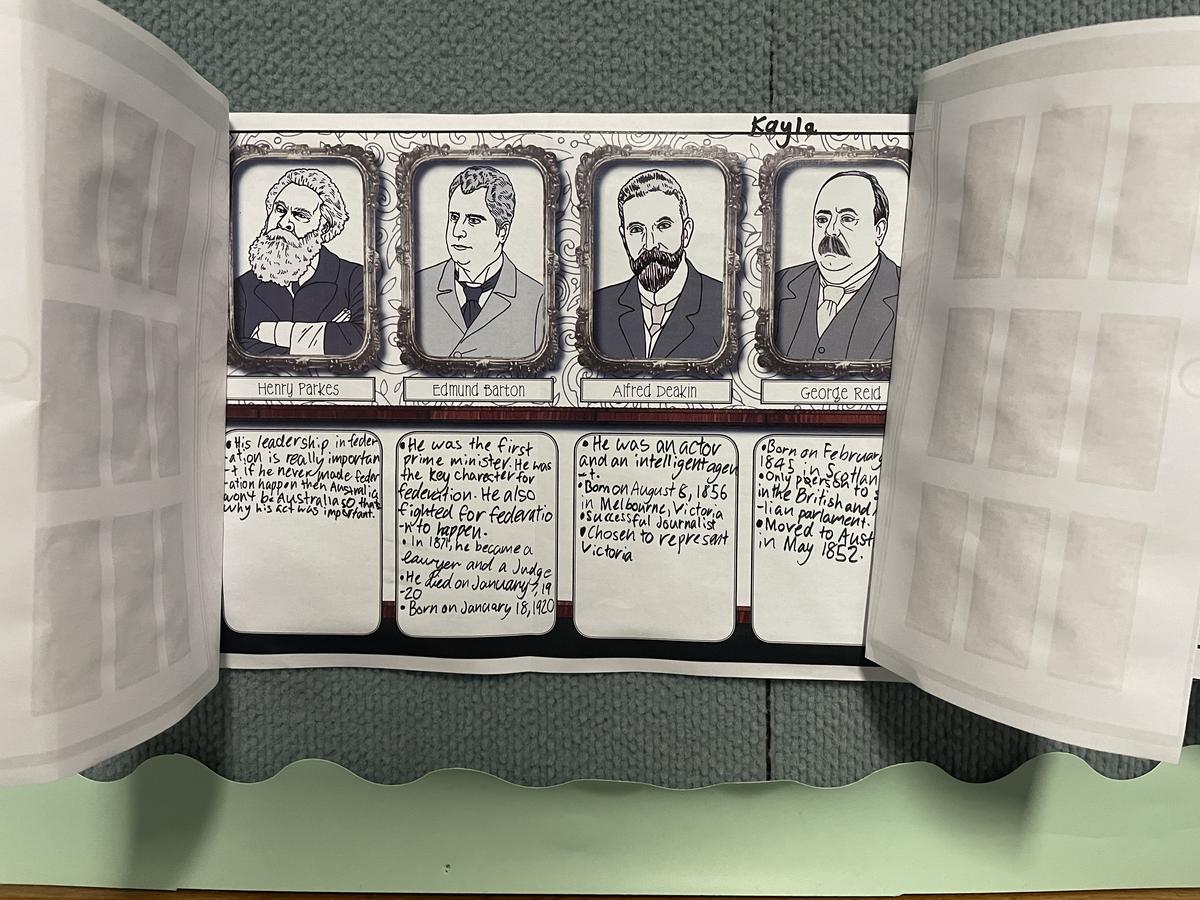 Kayla
Henry Parkes
Edmund Barton
Alfred Deakin
George Reid
• His leadership in feder
-ation is really importan
-t. If he never made feder
-ation happen then Australia
won't be Australia so, that
why his act was important.
• He was the first
prime minister. He was
the key character for
federation. He also
fighted for federatio
-n to happen.
• In 1871, he became a
lawyer and a Judge
• He died on January 7, 19
-20
• Born on January 18, 1920
• He was an actor
and an intelligent agen
-t.
• Born on August 8, 1856
in Melbourne, Victoria
• successful journalist
• Chosen to represent
Victoria
• Born on February
1845 in Scotlan
• Only person to s
in the British and
-lian parliament.
• Moved to Aust
in May 1852.